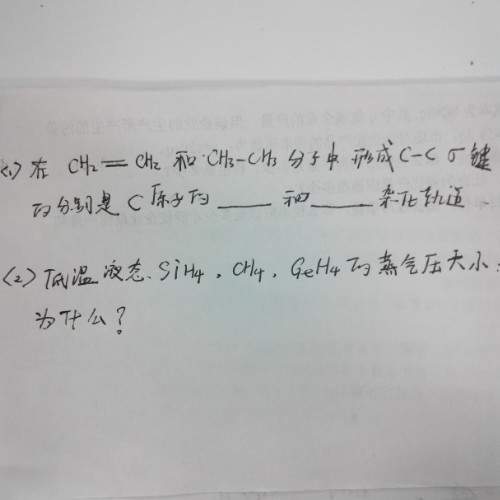 (1) 在 CH₂=CH₂ 和 CH₃-CH₃ 分子中 形成C-C σ键
的分别是C原子的____和____杂化轨道.
(2) 低温液态.SiH₄,CH₄,GeH₄的蒸气压大小:
为什么?